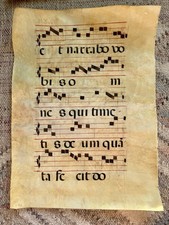 E t narrabo vo
bi s o m
ne s qui time
ti s de um quā
ta fe cit do